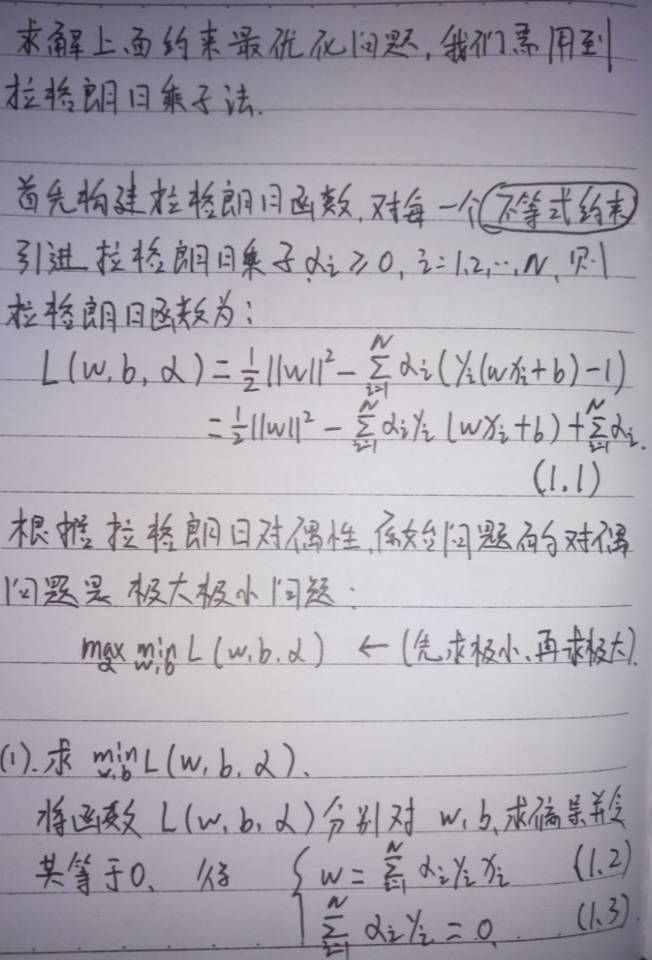 求解上面约束最优化问题,我们需用到
拉格朗日乘子法.
首先构建拉格朗日函数,对每一个不等式约束
引进拉格朗日乘子 αi ≥ 0, i=1,2,…,N, 则
拉格朗日函数为:
L(w,b,α) = ½||w||² - ∑_{i=1}^{N} αi(yi(wxi+b)-1)
= ½||w||² - ∑_{i=1}^{N} αiyi(wxi+b) + ∑_{i=1}^{N} αi.
(1.1)
根据拉格朗日对偶性,原始问题的对偶
问题是极大极小问题:
max_{α} min_{w,b} L(w,b,α) ← (先求极小、再求极大).
(1).求 min_{w,b} L(w,b,α).
将函数 L(w,b,α)分别对 w,b,求偏导并令
其等于0, 得 { w = ∑_{i=1}^{N} αiyixi (1.2)
∑_{i=1}^{N} αiyi = 0 (1.3)